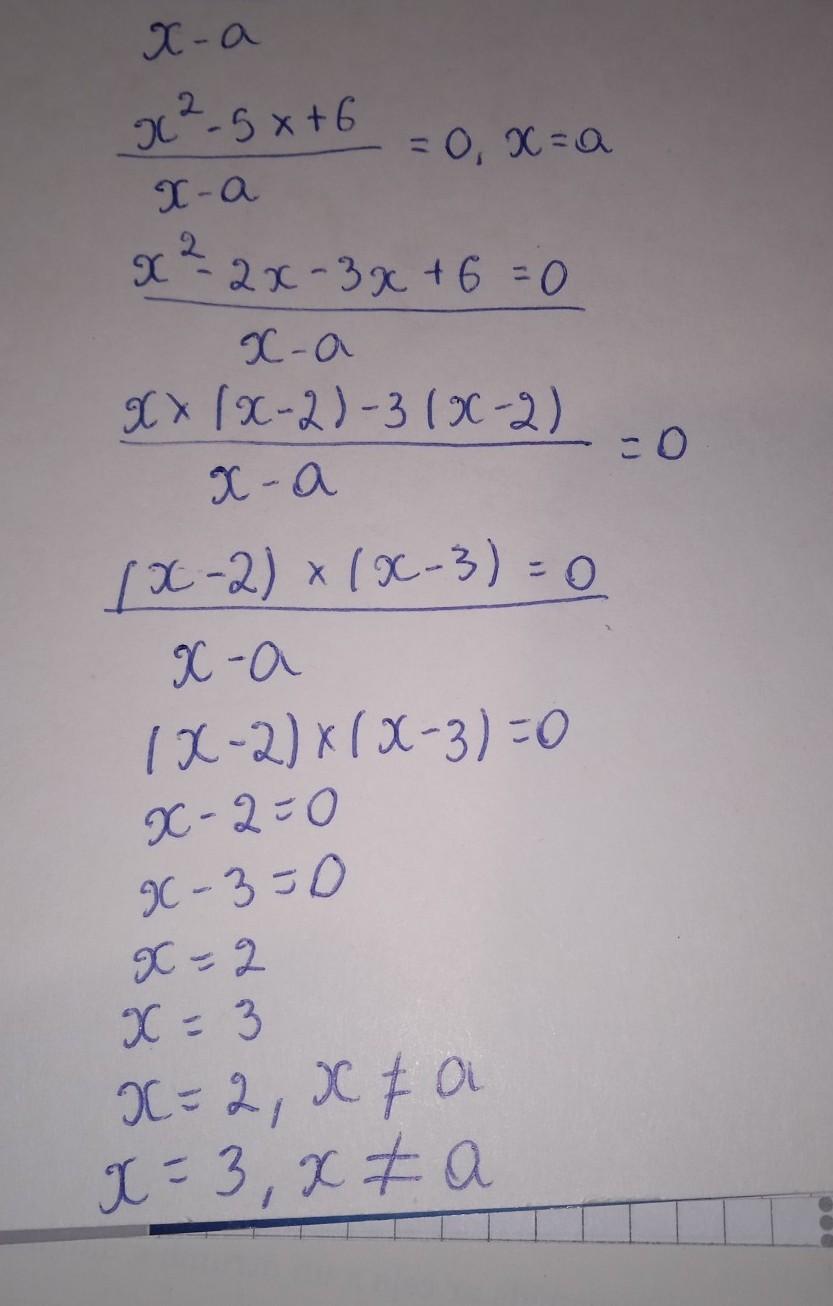 x-a
x²-5x+6
= 0, x=a
x-a
x²-2x-3x+6=0
x-a
x×(x-2)-3(x-2)
=0
x-a
(x-2)×(x-3)=0
x-a
(x-2)×(x-3)=0
x-2=0
x-3=0
x=2
x=3
x=2, x≠a
x=3, x≠a